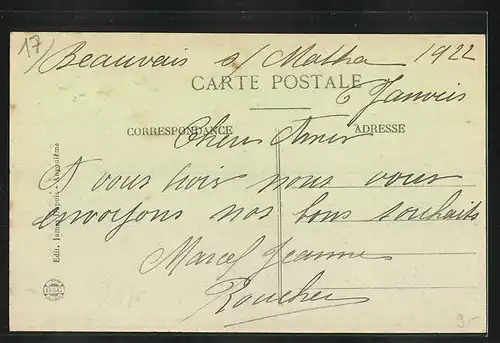 17/
Beauvais s/ Matha 1922
CARTE POSTALE
6 Janvier
CORRESPONDANCE ADRESSE
Chers Amis
A vous trois nous vous
envoyons nos bons souhaits
Marcel Jeanne
Roucher
Edit. Angoulême
9.-